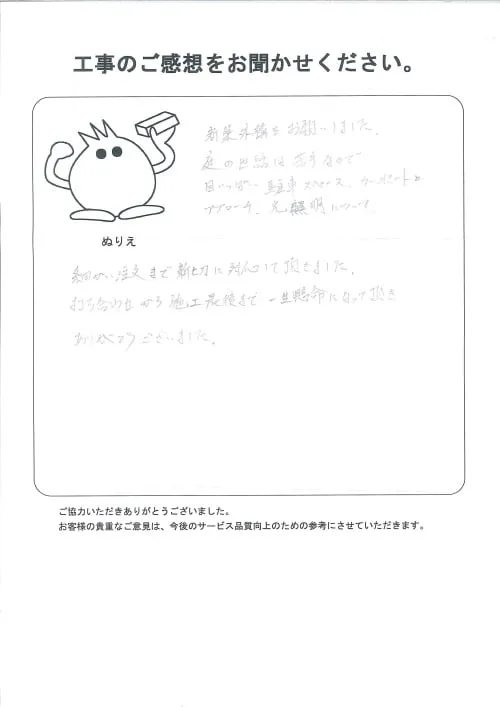 工事のご感想をお聞かせください。
新築外構をお願いしました。
庭の世話は苦手なので
目いっぱい 駐車スペース、カーポートと
アプローチ、
照明について
ぬりえ
細かい注文まで親切に対応して頂きました。
打ち合わせから施工最後まで一生懸命になって頂き
ありがとうございました。
ご協力いただきありがとうございました。
お客様の貴重なご意見は、今後のサービス品質向上のための参考にさせていただきます。